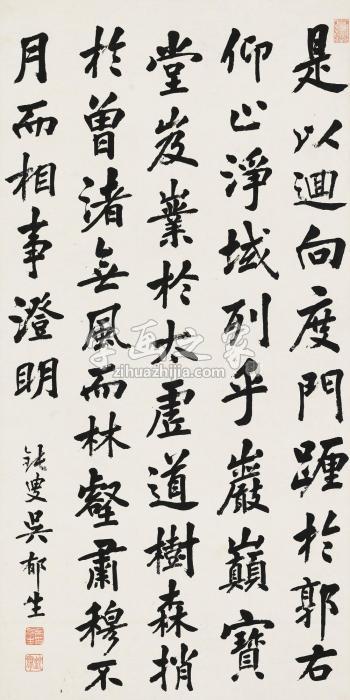 是以迴向度門躔於郭右
仰止淨域列乎巖巔寶
堂岌嶪於太虛道樹森梢
於曾渚無風而林壑肅穆不
月而相事澄明
鈍叟吳郁生
字画之家
zihuazhijia.com